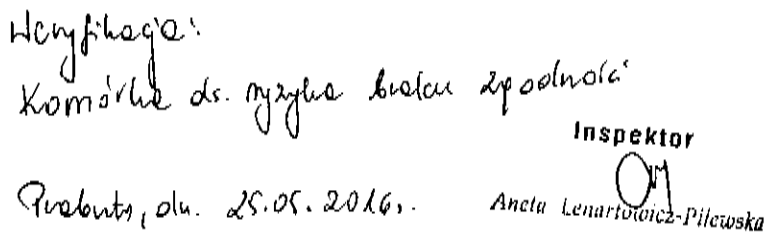 Weryfikacja:
Komórka ds. ryzyka braku zgodności
Inspektor
Prabuty, dn. 25.05.2016r.
Aneta Lenartowicz-Pilewska